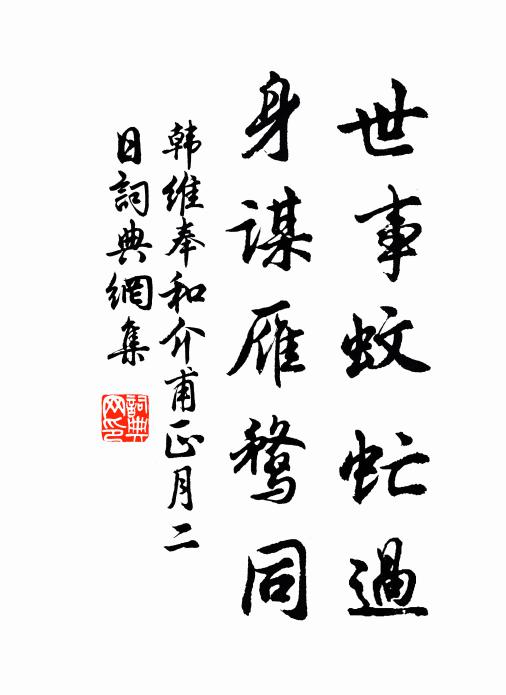 世事蚊虻過
身謀雁鶩同
韩維奉和介甫正月二
日詞典網集
詞典
网印